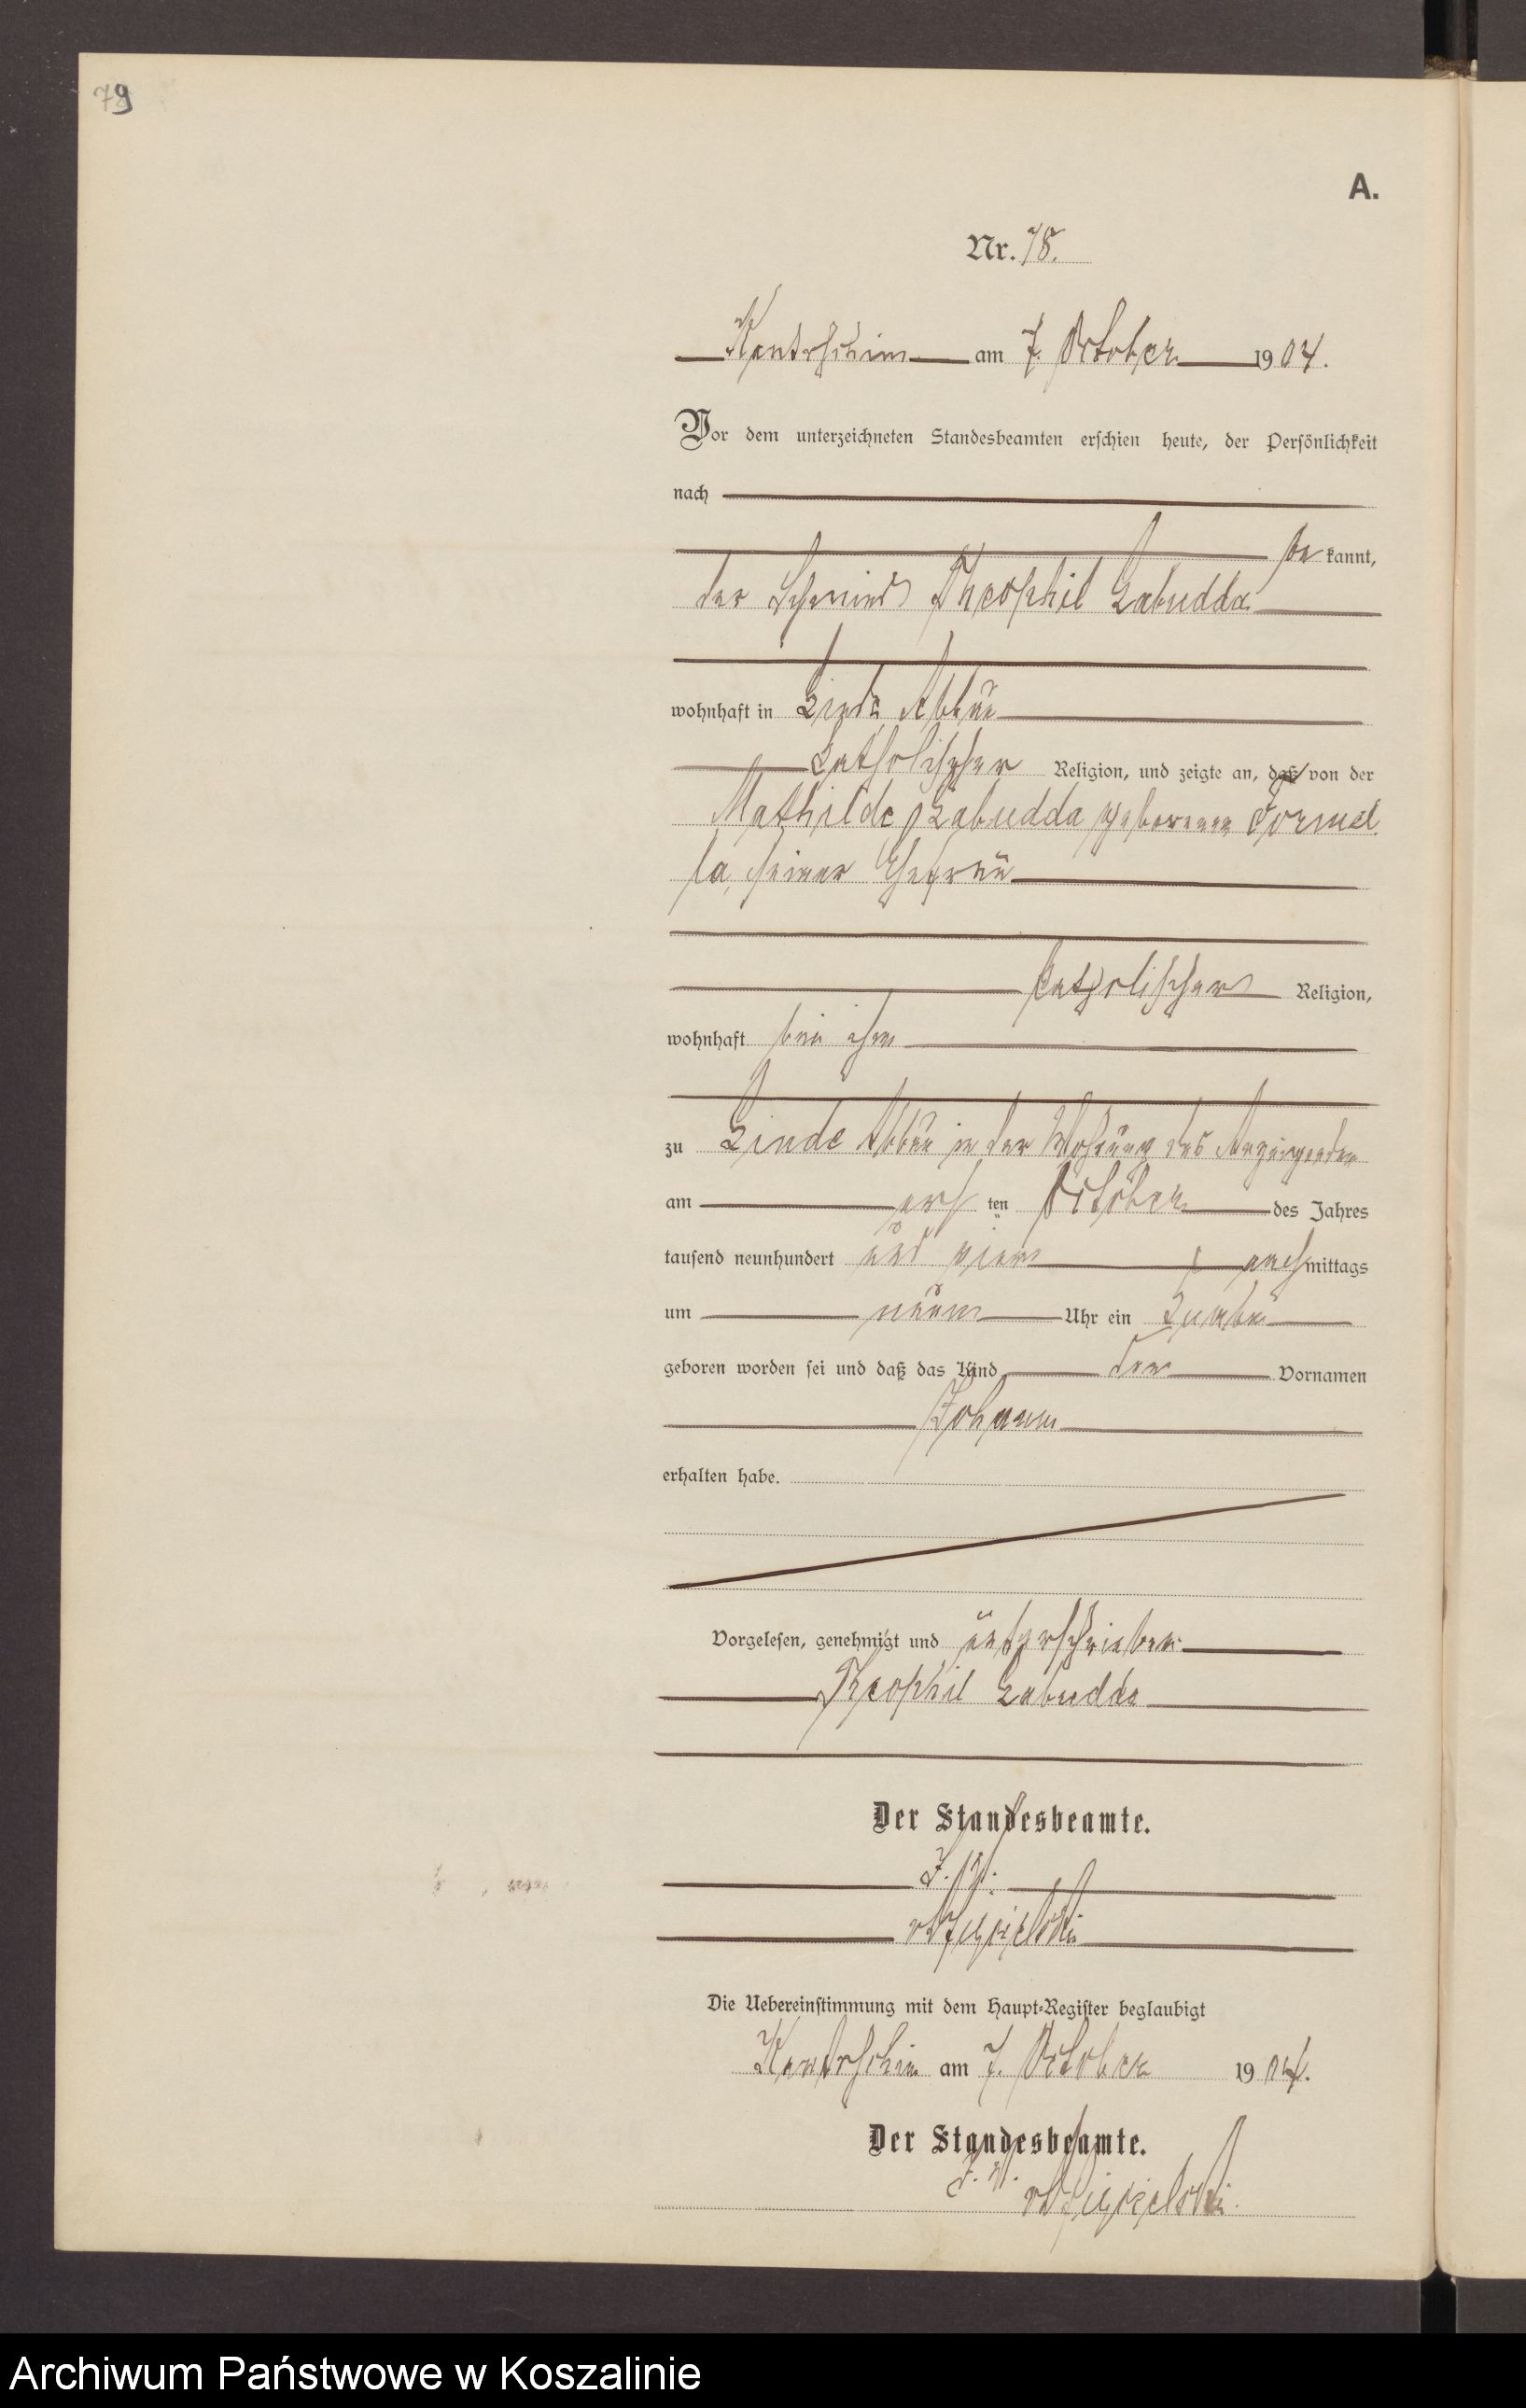 79
A.
Nr. 78.
Kantrschin am 7. October 1904.
Vor dem unterzeichneten Standesbeamten erschien heute, der Persönlichkeit
nach
be kannt,
der Schmied Theophil Labudda
wohnhaft in Linde Abbau
katholischer Religion, und zeigte an, daß von der
Mathilde Labudda geborenen Formel
la, seiner Ehefrau
katholischer Religion,
wohnhaft bei ihm
zu Linde Abbau in der Wohnung des Anzeigenden
am ersten October des Jahres
tausend neunhundert und vier nachmittags
um neun Uhr ein Knabe
geboren worden sei und daß das Kind den Vornamen
Johann
erhalten habe.
Vorgelesen, genehmigt und unterschrieben
Theophil Labudda
Der Standesbeamte.
J. V.
Die Uebereinstimmung mit dem Haupt-Register beglaubigt
Kantrschin am 7. October 1904.
Der Standesbeamte.
J. V.
Archiwum Państwowe w Koszalinie